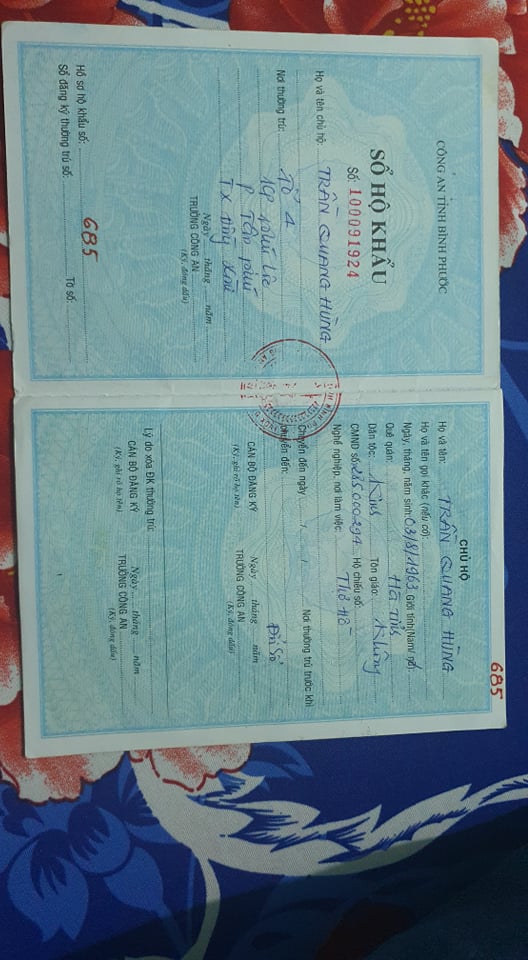 CÔNG AN TỈNH BÌNH PHƯỚC
SỔ HỘ KHẨU
Số: 100091924
Họ và tên chủ hộ: TRẦN QUANG HÙNG
Nơi thường trú: Tổ 4
KP phú Lộc
P Tân phú
TX Đồng Xoài
Ngày ... tháng ... năm
TRƯỞNG CÔNG AN
(Ký, đóng dấu)
Hồ sơ hộ khẩu số: 685
Sổ đăng ký thường trú số: Tờ số:
685
CHỦ HỘ
Họ và tên: TRẦN QUANG HÙNG
Họ và tên gọi khác (nếu có):
Ngày, tháng, năm sinh: 03/8/1963 Giới tính(Nam/nữ):
Quê quán: Hà Tĩnh
Dân tộc: Kinh Tôn giáo: Không
CMND số: 285.000294 Hộ chiếu số:
Nghề nghiệp, nơi làm việc: Thợ hồ
Nơi thường trú trước khi
chuyển đến:
Chuyển đến ngày / /
CÁN BỘ ĐĂNG KÝ
(Ký, ghi rõ họ tên)
Ngày ... tháng ... năm
TRƯỞNG CÔNG AN
(Ký, đóng dấu)
Lý do xóa ĐK thường trú:
CÁN BỘ ĐĂNG KÝ
(Ký, ghi rõ họ tên)
Ngày ... tháng ... năm
TRƯỞNG CÔNG AN
(Ký, đóng dấu)